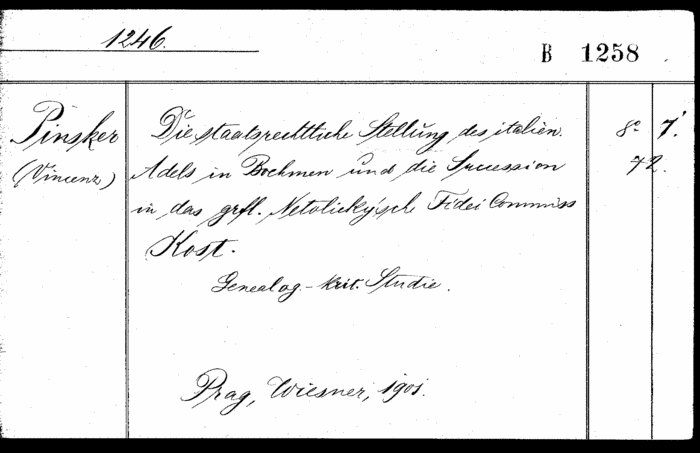 1246.
B 1258
Pinsker
(Vincenz)
Die staatsrechtliche Stellung des italien.
Adels in Boehmen und die Succession
in das grfl. Netolicky'sche Fidei Commiss
Kost.
Genealog.-krit. Studie.
Prag, Wiesner, 1901.
8° 1'
72.